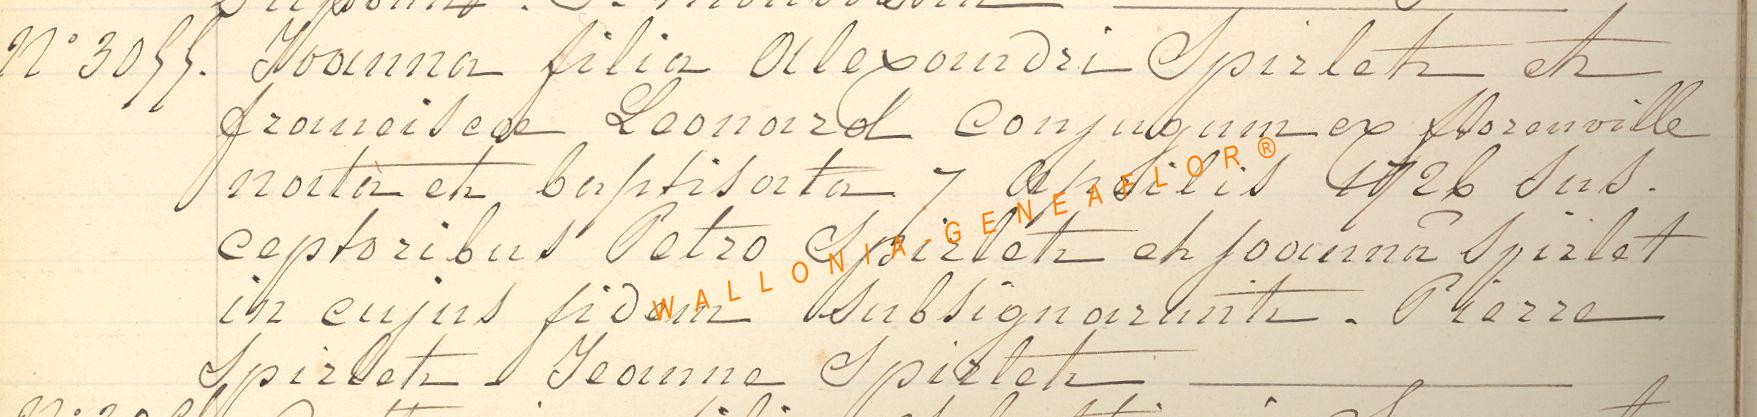 N° 3055. Joanna filia Alexandri Spirlet et
franciscae Leonard conjugum ex florenville
nata et baptisata 7 Aprilis 1726 sus.
ceptoribus Petro Spirlet et joanna Spirlet
in cujus fidem subsignarunt. Pierre
Spirlet. Jeanne Spirlet
WALLONIA-GENEAFLOR®